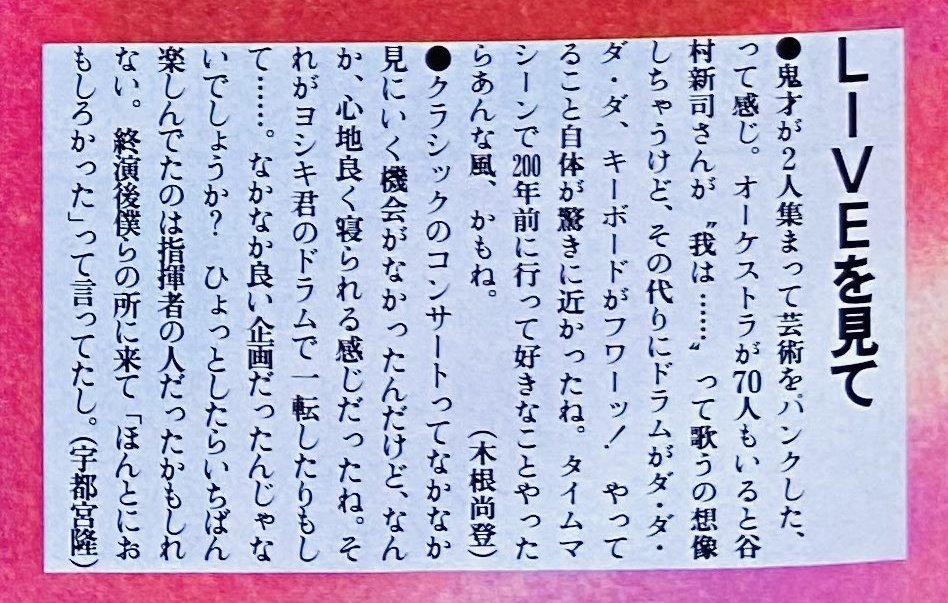 LIVEを見て
●鬼才が2人集まって芸術をパンクした、
って感じ。オーケストラが70人もいると谷
村新司さんが〝我は……〟って歌うの想像
しちゃうけど、その代りにドラムがダ・ダ・
ダ・ダ、キーボードがフワーッ! やって
ること自体が驚きに近かったね。タイムマ
シーンで200年前に行って好きなことやった
らあんな風、かもね。 (木根尚登)
●クラシックのコンサートってなかなか
見にいく機会がなかったんだけど、なん
か、心地良く寝られる感じだったね。そ
れがヨシキ君のドラムで一転したりもし
て……。なかなか良い企画だったんじゃな
いでしょうか? ひょっとしたらいちばん
楽しんでたのは指揮者の人だったかもしれ
ない。終演後僕らの所に来て「ほんとにお
もしろかった」って言ってたし。(宇都宮隆)